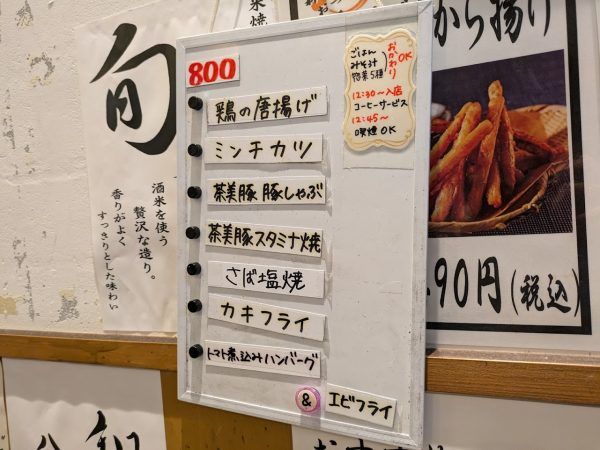 旬
酒米を使う
贅沢な造り。
香りがよく
すっきりとした味わい
800
鶏の唐揚げ
ミンチカツ
茶美豚 豚しゃぶ
茶美豚スタミナ焼
さば塩焼
カキフライ
トマト煮込みハンバーグ
&
エビフライ
ごはん
みそ汁
惣菜5種
おかわりOK
12:30〜入店
コーヒーサービス
12:45〜
喫煙OK
から揚げ
90円(税込)